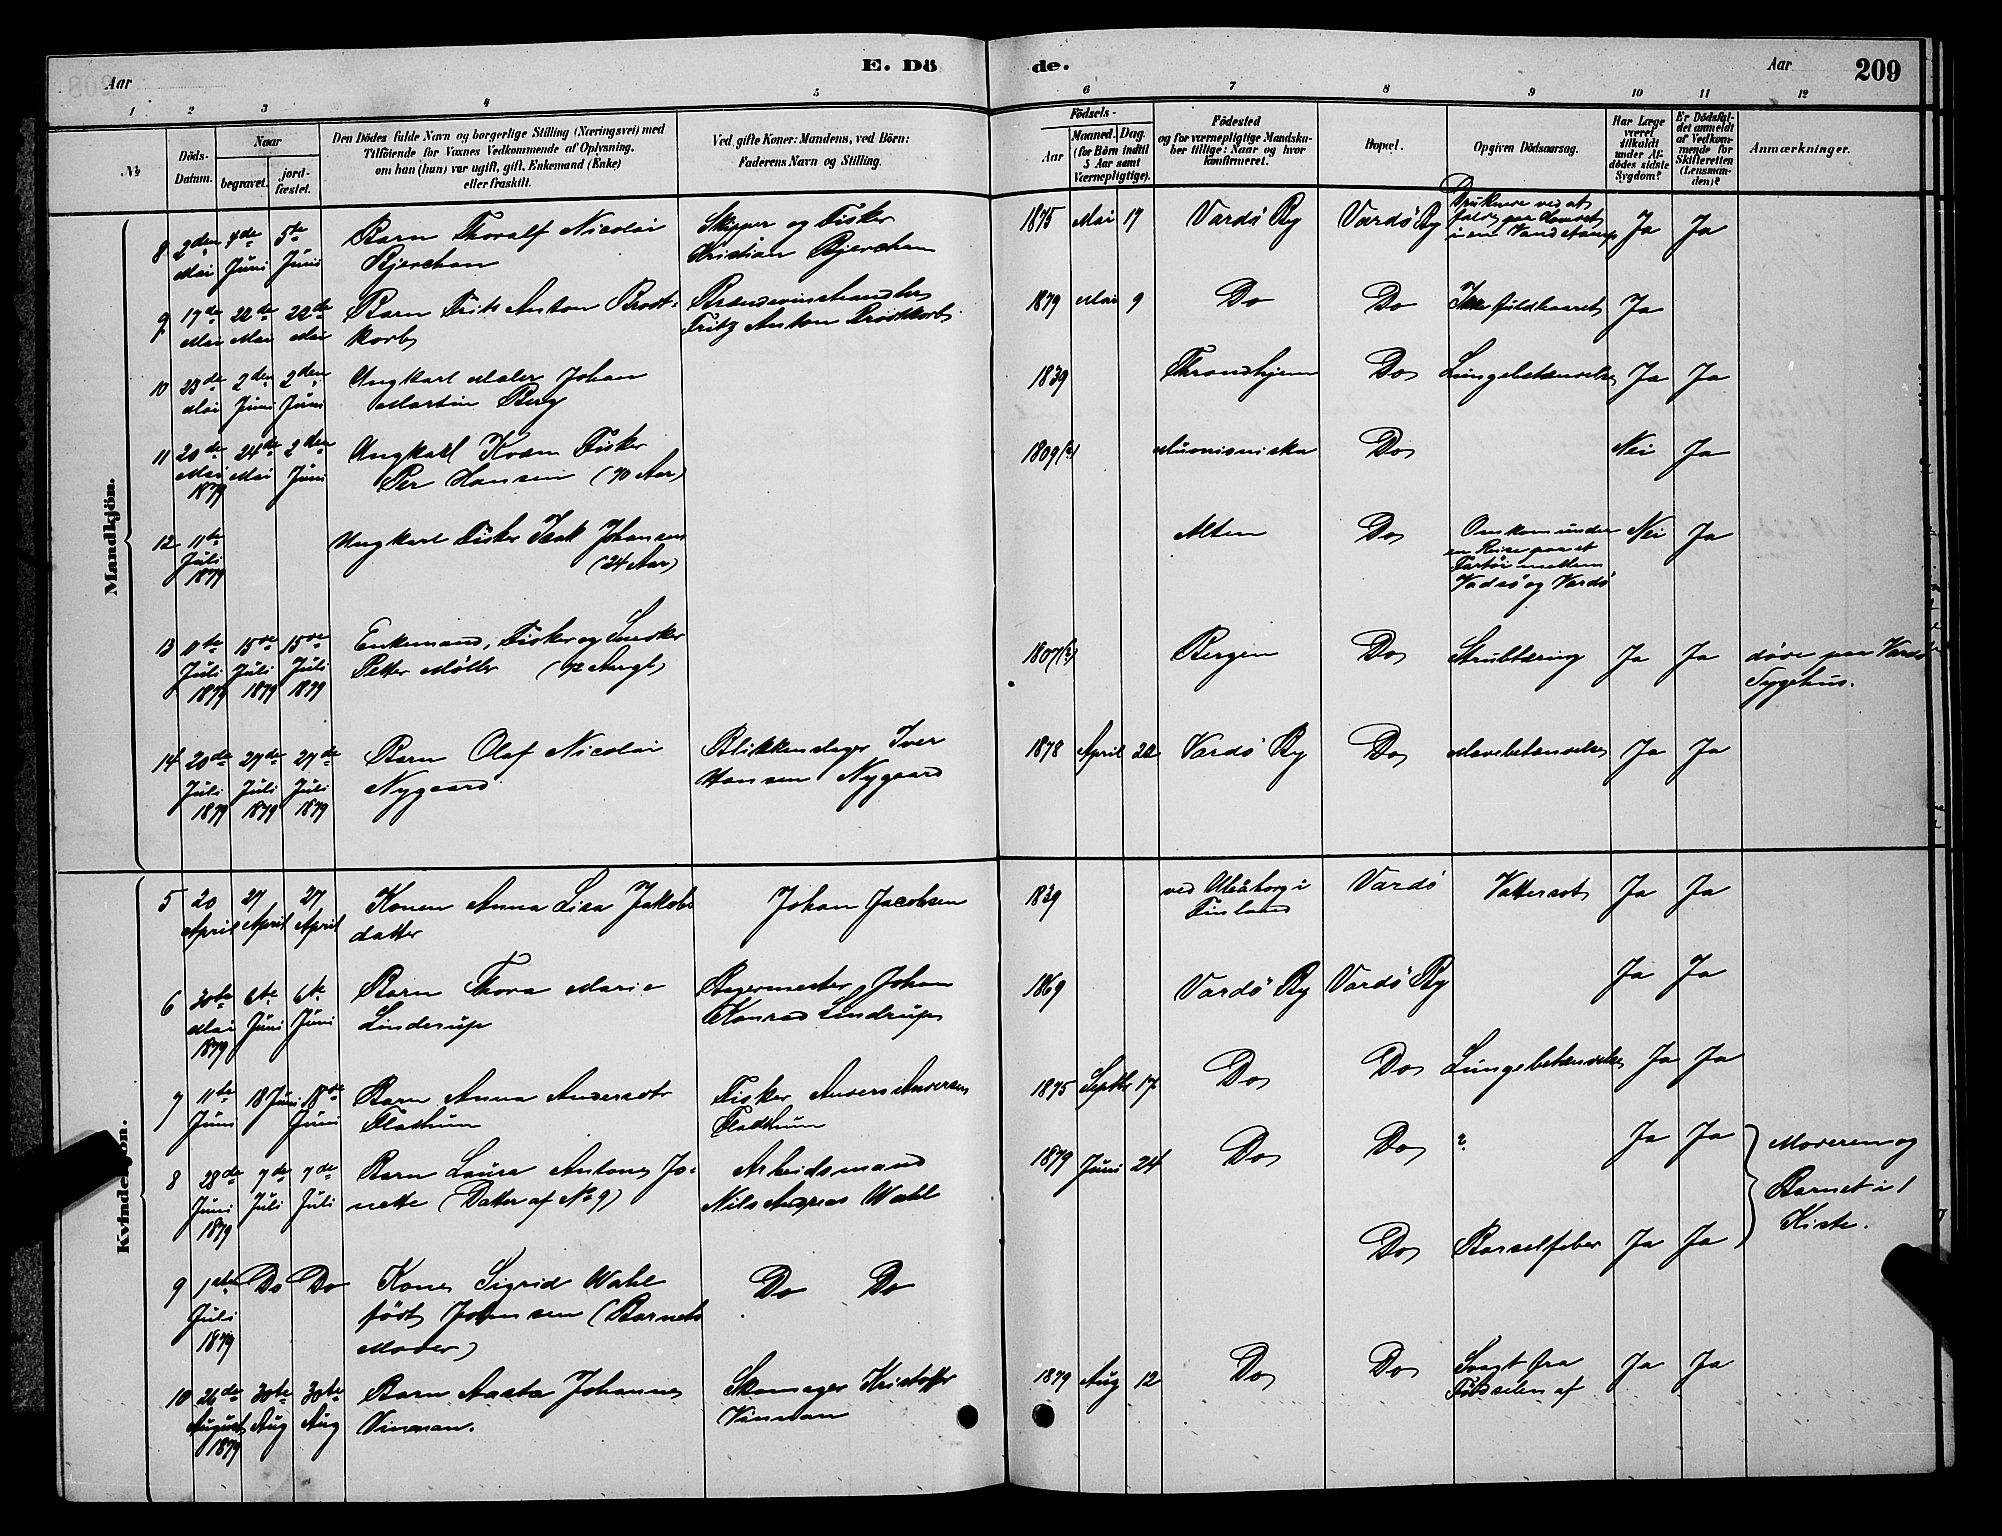 E. Dö
de.
Aar
Aar
209
1 2 3 4 5 6 7 8 9 10 11 12
No
Döds-Datum.
Naar
begravet.
jord-fæstet.
Den Dödes fulde Navn og borgerlige Stilling (Næringsvei) med
Tilföiende for Voxnes Vedkommende af Oplysning,
om han (hun) var ugift, gift, Enkemand (Enke)
eller fraskilt.
Ved gifte Koner: Mandens, ved Börn:
Faderens Navn og Stilling.
Födsels-
Aar
Maaned. Dag.
(for Börn indtil
5 Aar samt
Værnepligtige).
Födested
og for værnepligtige Mandska-
ber tillige: Naar og hvor
konfirmeret.
Bopæl.
Opgiven Dödsaarsag.
Har Læge
været
tilkaldt
under Af-
dödes sidste
Sygdom?
Er Dödsfal-
det anmeldt
af Vedkom-
mende for
Skifteretten
(Lensman-
den)?
Anmærkninger.
Mandkjön.
8 2den Mai 4de Juni 5te Juni
Barn Thoralf Nicolai
Bjerchan
Skipper og Fisker
Kristian Bjerchan
1875 Mai 17 Vardö By Vardö By
Druknede ved at
falde paa Hovedet
i en Vandstamp
Ja Ja
9 17de Mai 22de Mai 22de Mai
Barn Frits Anton Brodt-
korb
Brændevinshandler
Fritz Anton Brodtkorb
1879 Mai 9 Do Do Ikke fuldbaaret Ja
10 23de Mai 2den Juni 2den Juni
Ungkarl Maler Johan
Martin Berg
1839 Throndhjem Do Lungebetændelse Ja Ja
11 20de Mai 1879 24de Mai 2den Juni
Ungkarl Kvæn Fisker
Per Hansen (70 Aar)
1809(?) Muonioniska Do Nei Ja
12 11te Juli 1879
Ungkarl Fisker Isak Johansen
(24 Aar)
Alten Do
Omkom under
en Reise paa et
Fartöi mellem
Vadsö og Vardö
Nei Ja
13 11te Juli 1879 15de Juli 1879 15de Juli 1879
Enkemand, Fisker og Snedker
Petter Möller (72 Aargl)
1807(?) Bergen Do Strubtæring Ja Ja
döde paa Vardö
Sygehus.
14 20de Juli 1879 27de Juli 1879 27de Juli 1879
Barn Olaf Nicolai
Nygaard
Blikkenslager Iver
Hansen Nygaard
1878 April 22 Vardö By Do Mavebetændelse Ja Ja
Kvindekjön.
5 20 April 27 April 27 April
Konen Anna Lisa Jakobs
datter
Johan Jacobsen
1839 ved Uleåborg i
Finland
Vardö Vattersot Ja Ja
6 30te Mai 1879 6te Juni 6te Juni
Barn Thora Marie
Linderup
Bagermester Johan
Konrad Lindrup
1869 Vardö By Vardö By Ja Ja
7 11te Juni 18 Juni 18de Juni
Barn Anna Andersdtr
Fladhum
Fisker Anders Andersen
Fladhum
1875 Septbr 17 Do Do Lungebetændelse Ja Ja
8 28de Juni 1879 7de Juli 7de Juli
Barn Laura Antone Jo-
nette (Datter af No 9)
Arbeidsmand
Nils Andreas Wahl
1879 Juni 24 Do Do ? Ja Ja
Moderen og
Barnet i 1
Kiste.
9 1ste Juli 1879 Do Do
Kone Sigrid Wahl
född Johnsen (Barnets
Moder)
Do Do
Do Barselfeber Ja Ja
10 26de August 1879 30te Aug 30te Aug
Barn Aasta Johannes
Vinman.
Skomager Kristoffr
Vinman
1879 Aug 12 Do Do
Svagt fra
Födselen af
Ja Ja